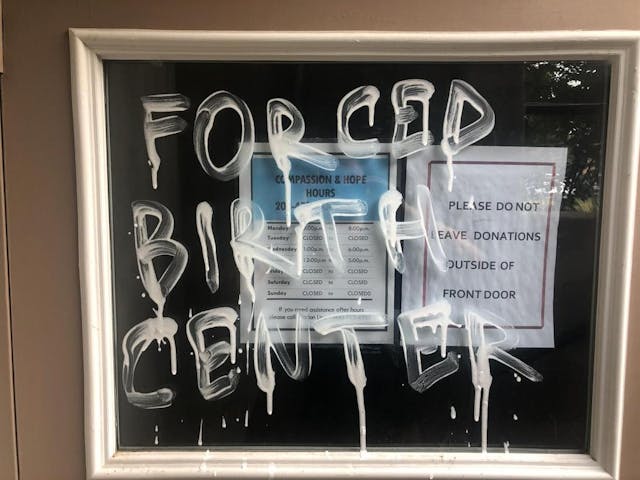 FORCED
BIRTH
CENTER
COMPASSION & HOPE
HOURS
Monday 8:00p.m.
Tuesday CLOSED to CLOSED
6:00p.m.
12:00p.m. 5:00p.m.
CLOSED to CLOSED
Saturday CLOSED to CLOSED
Sunday CLOSED to CLOSED
If you need assistance after hours
please call
PLEASE DO NOT
LEAVE DONATIONS
OUTSIDE OF
FRONT DOOR